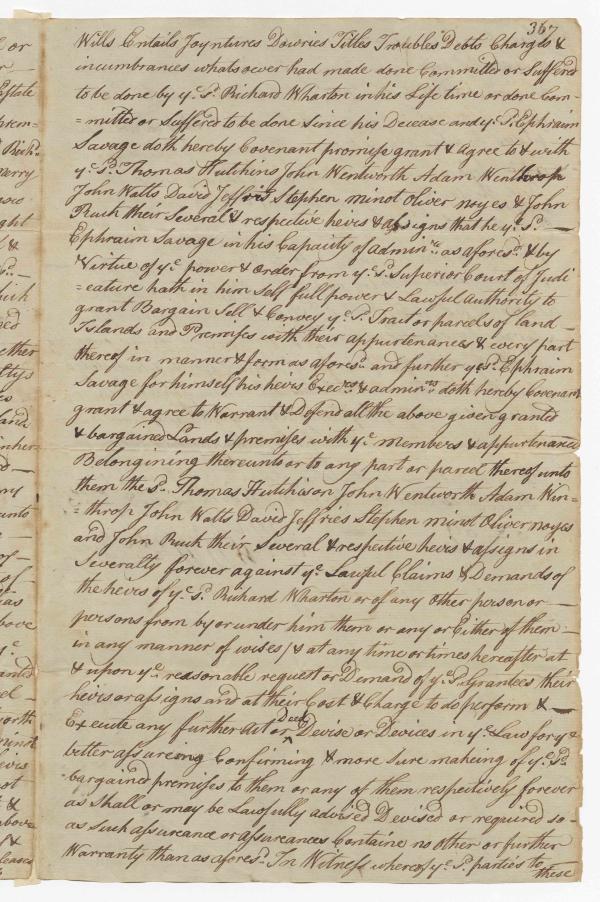 367
Wills Entails Joyntures Dowries Titles Troubles Debts Charges &
incumbrances whatsoever had made done Committed or Suffered
to be done by yͤ. Sᵈ. Richard Wharton in his Life time or done Com-
=mitted or Suffered to be done Since his Decease and yͤ. Sᵈ. Ephraim
Savage doth hereby Covenant promise grant & agree to & with
yͤ. Sᵈ. Thomas Hutchins John Wentworth Adam Wenthrop
John Watts David Jeffris Stephen minot Oliver noyes & John
Ruck their Several & respective heirs & assigns that he yͤ. Sᵈ. —
Ephraim Savage in his Capacity of adminʳ. as aforesᵈ. & by
Virtue of yͤ. power & Order from yͤ. Sᵈ. Superior Court of Judi
=cature hath in him Self full power & Lawful Authority to
grant Bargain Sell & Convey yͤ. Sᵈ. Tract or parcels of land —
Islands and Premises with their appurtenances & every part
thereof in manner & form as aforesᵈ. and further yͤ Sᵈ. Ephraim
Savage for himself his heirs Execʳˢ & adminʳˢ doth hereby Covenant
grant & agree to Warrant & Defend all the above given granted
& bargained Lands & premises with yͤ. members & appurtenances
Belongining thereunto or to any part or parcel thereof unto
them the Sᵈ. Thomas Hutchison John Wentworth Adam Win-
=throp John Watts David Jeffries Stephen minot Oliver noyes
and John Ruck their Several & respective heirs & assigns in
Severalty forever against yͤ. Lawful Claims & Demands of
the heirs of yͤ. Sᵈ. Richard Wharton or of any Other person or —
persons from by or under him them or any or Either of them —
in any manner of wises/ & at any time or times hereafter at
& upon yͤ. reasonable request or Demand of yͤ. Sᵈ. Grantees their
heirs or assigns and at their Cost & Charge to do perform & —
Execute any further Act or Deed Devise or Devices in yͤ. Law for yͤ
better assureing Confirming & more Sure makeing of yͤ. Sᵈ.
bargained premises to them or any of them respectively forever
as Shall or may be Lawfully advised Devised or required so -
as such assurance or assureances Containe no other or further
Warranty than as aforesᵈ. In Witness whereof yͤ. Sᵈ. parties to
these